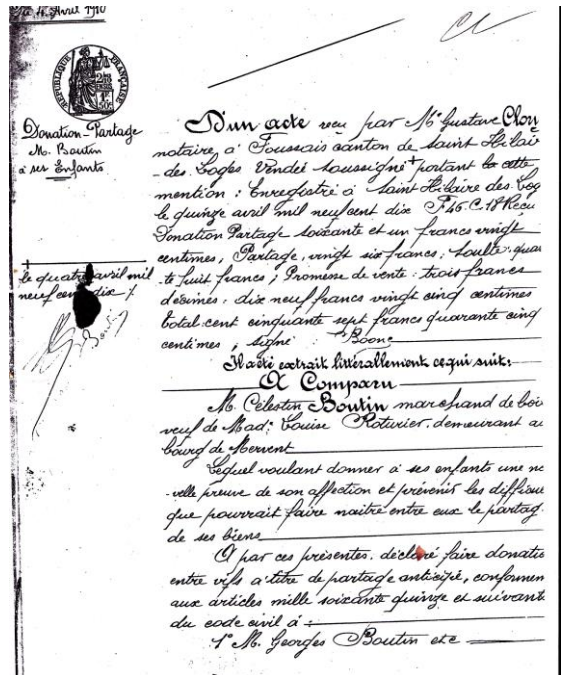 Du 4. Avril 1910
RÉPUBLIQUE FRANÇAISE
Donation-Partage
M. Boutin
à ses Enfants
D'un acte reçu par Me Gustave Clory
notaire, à Foussais canton de Saint Hilair
-des-Loges Vendée soussigné + portant la cette
mention : Enregistré à Saint Hilaire des Log
le quinze avril mil neuf cent dix F° 46. C. 18 Reçu
Donation Partage soixante et un francs vingt
centimes, Partage, vingt six francs ; Soulte : qua
-te huit francs ; Promesse de vente : trois francs
décimes : dix neuf francs vingt cinq centimes
Total : cent cinquante sept francs quarante cinq
centimes ; signé : Boone
+
le quatre avril mil
neuf cent dix /.
Boutin
Il a été extrait littérallement ce qui suit :
A Comparu
M. Célestin Boutin marchand de boi
veuf de Mad: Louise Roturier, demeurant au
bourg de Mervent
Lequel voulant donner à ses enfants une no
-velle preuve de son affection et prévenir les difficu
que pourrait faire naitre entre eux le partag
de ses biens
A par ces présentes, déclaré faire donatio
entre vifs a titre de partage anticipé, conformem
aux articles mille soixante quinze et suivants
du code civil à :
1° M. Georges Boutin etc